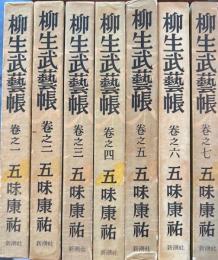 柳生武藝帳
卷之一
五味康祐
新潮社
柳生武藝帳
卷之二
五味康祐
新潮社
柳生武藝帳
卷之三
五味康祐
新潮社
柳生武藝帳
卷之四
五味康祐
新潮社
柳生武藝帳
卷之五
五味康祐
新潮社
柳生武藝帳
卷之六
五味康祐
新潮社
柳生武藝帳
卷之七
五味康祐
新潮社